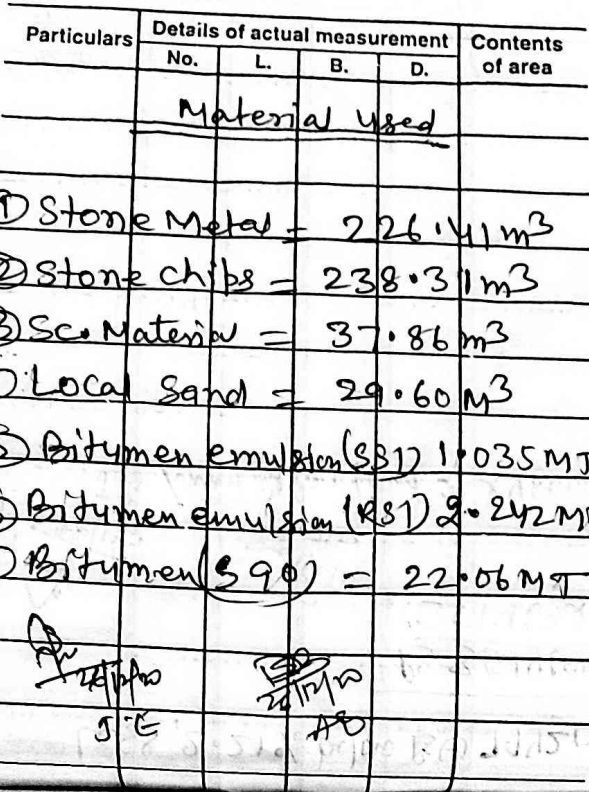 Particulars Details of actual measurement Contents of area
No. L. B. D.
Material Used
① Stone Metal = 226.41 m3
② Stone chips = 238.31 m3
③ Sc. Material = 37.86 m3
Local Sand = 29.60 M3
Bitumen emulsion (SS1) 1.035 MT
Bitumen emulsion (RS1) 2.242 M
Bitumen (S90) = 22.06 MT
26/12/20 26/12/20
J.E